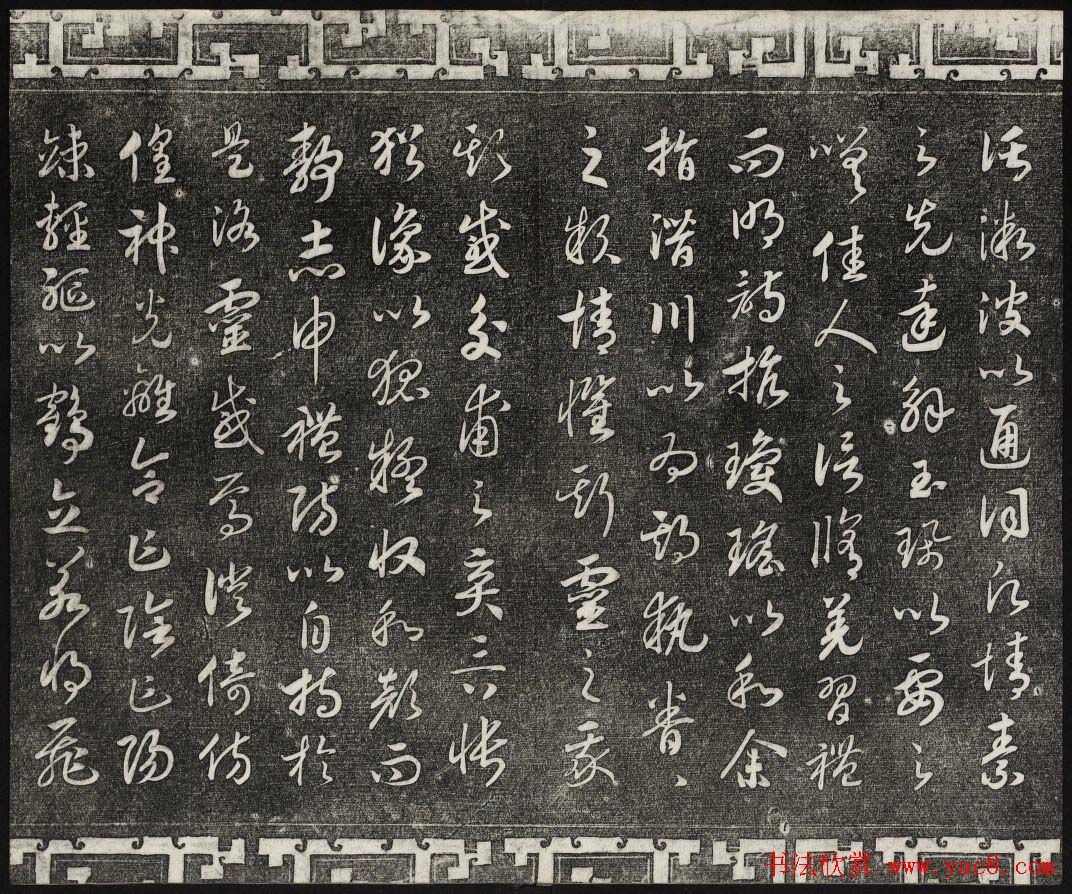 託微波以通詞願情素
之先達解玉珮以要之
嗟佳人之信脩羌習禮
而明詩抗瓊瑤以和余
指潛川以為期執眷〻
之款情懼斯靈之我
欺感交甫之棄言悵
猶豫以狐疑收和顏而
靜志申禮防以自持於
是洛靈感焉徙倚彷
徨神光離合乍陰乍陽
竦輕軀以鶴立若將飛
书法欣赏 www.yac8.com